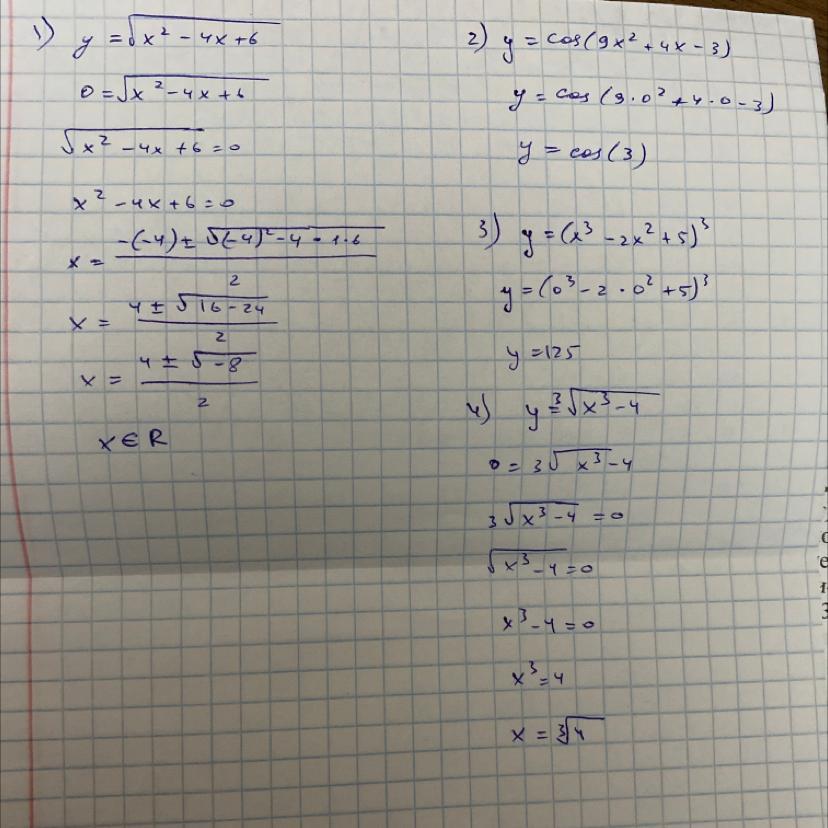 1) y = √(x² - 4x + 6)
0 = √(x² - 4x + 6)
√(x² - 4x + 6) = 0
x² - 4x + 6 = 0
x = (-(-4) ± √((-4)² - 4 · 1 · 6)) / 2
x = (4 ± √(16 - 24)) / 2
x = (4 ± √(-8)) / 2
x ∈ R
2) y = cos(9x² + 4x - 3)
y = cos(9 · 0² + 4 · 0 - 3)
y = cos(3)
3) y = (x³ - 2x² + 5)³
y = (0³ - 2 · 0² + 5)³
y = 125
4) y = ³√(x³ - 4)
0 = 3√(x³) - 4
3√(x³ - 4) = 0
√(x³ - 4) = 0
x³ - 4 = 0
x³ = 4
x = ³√4